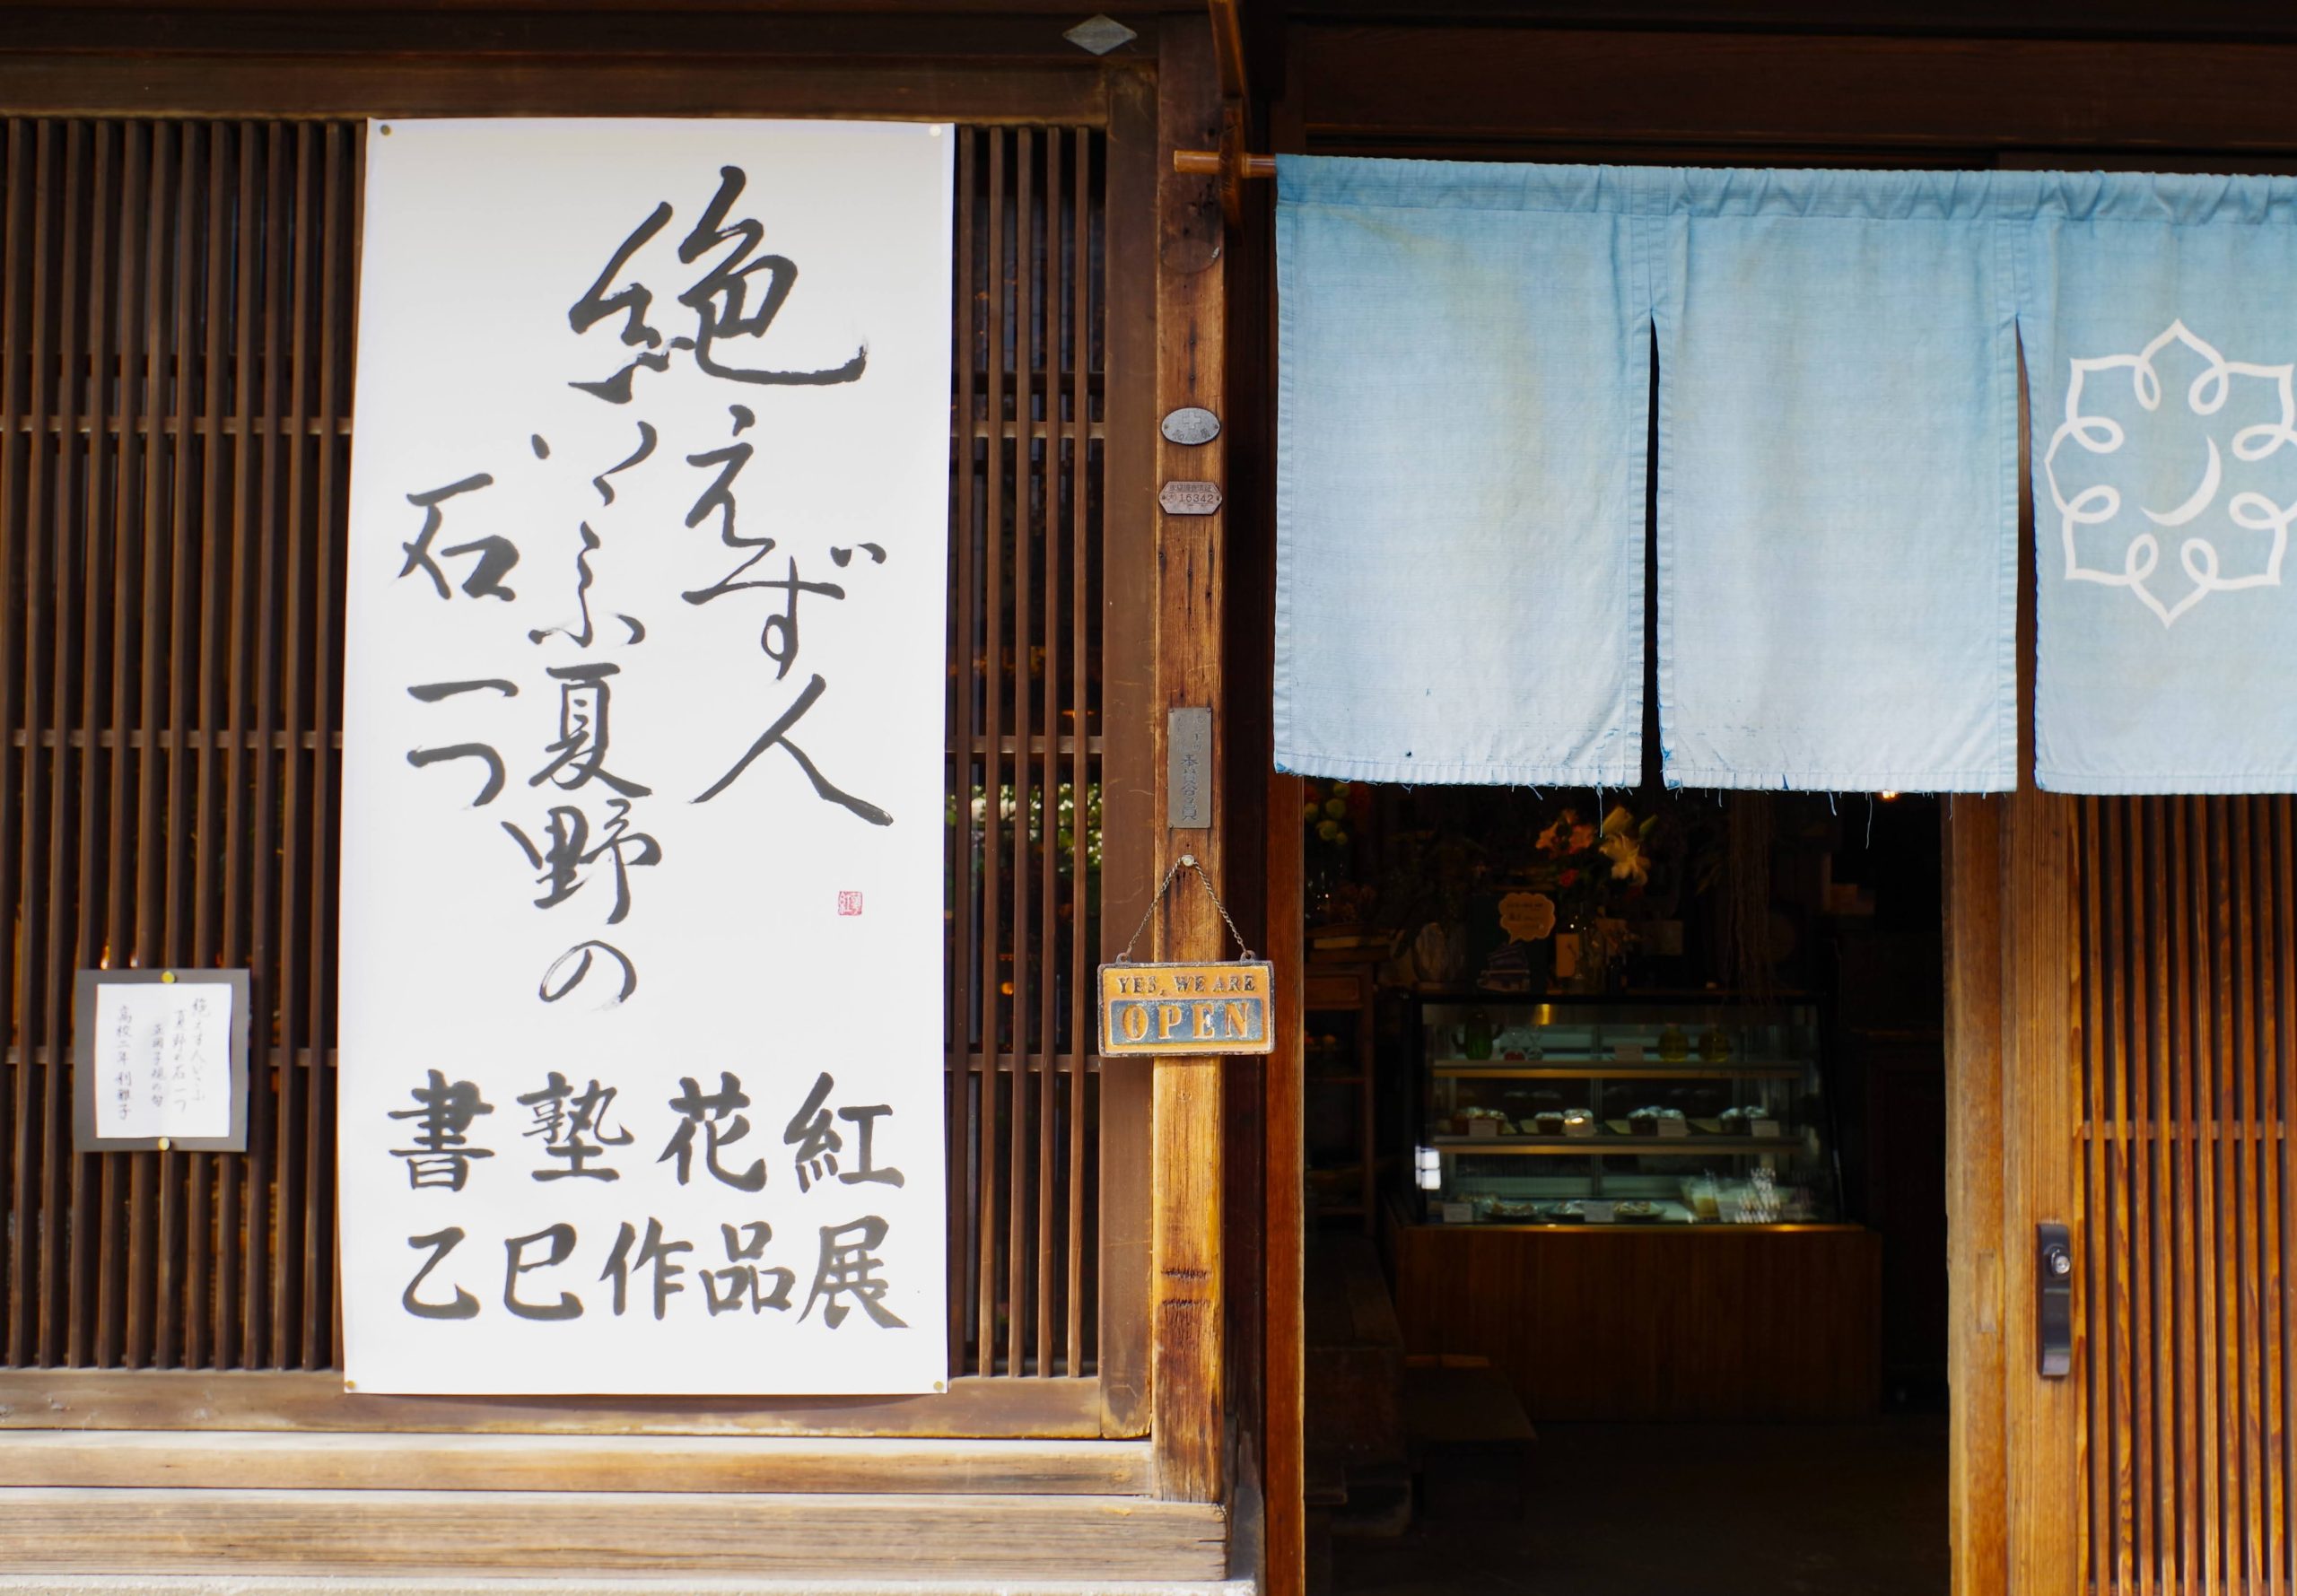 絶えず人
いこふ夏野の
石一つ
書塾花紅
乙巳作品展
絶えず人いこふ
夏野の石一つ
正岡子規の句
高校二年
16342
YES, WE ARE
OPEN